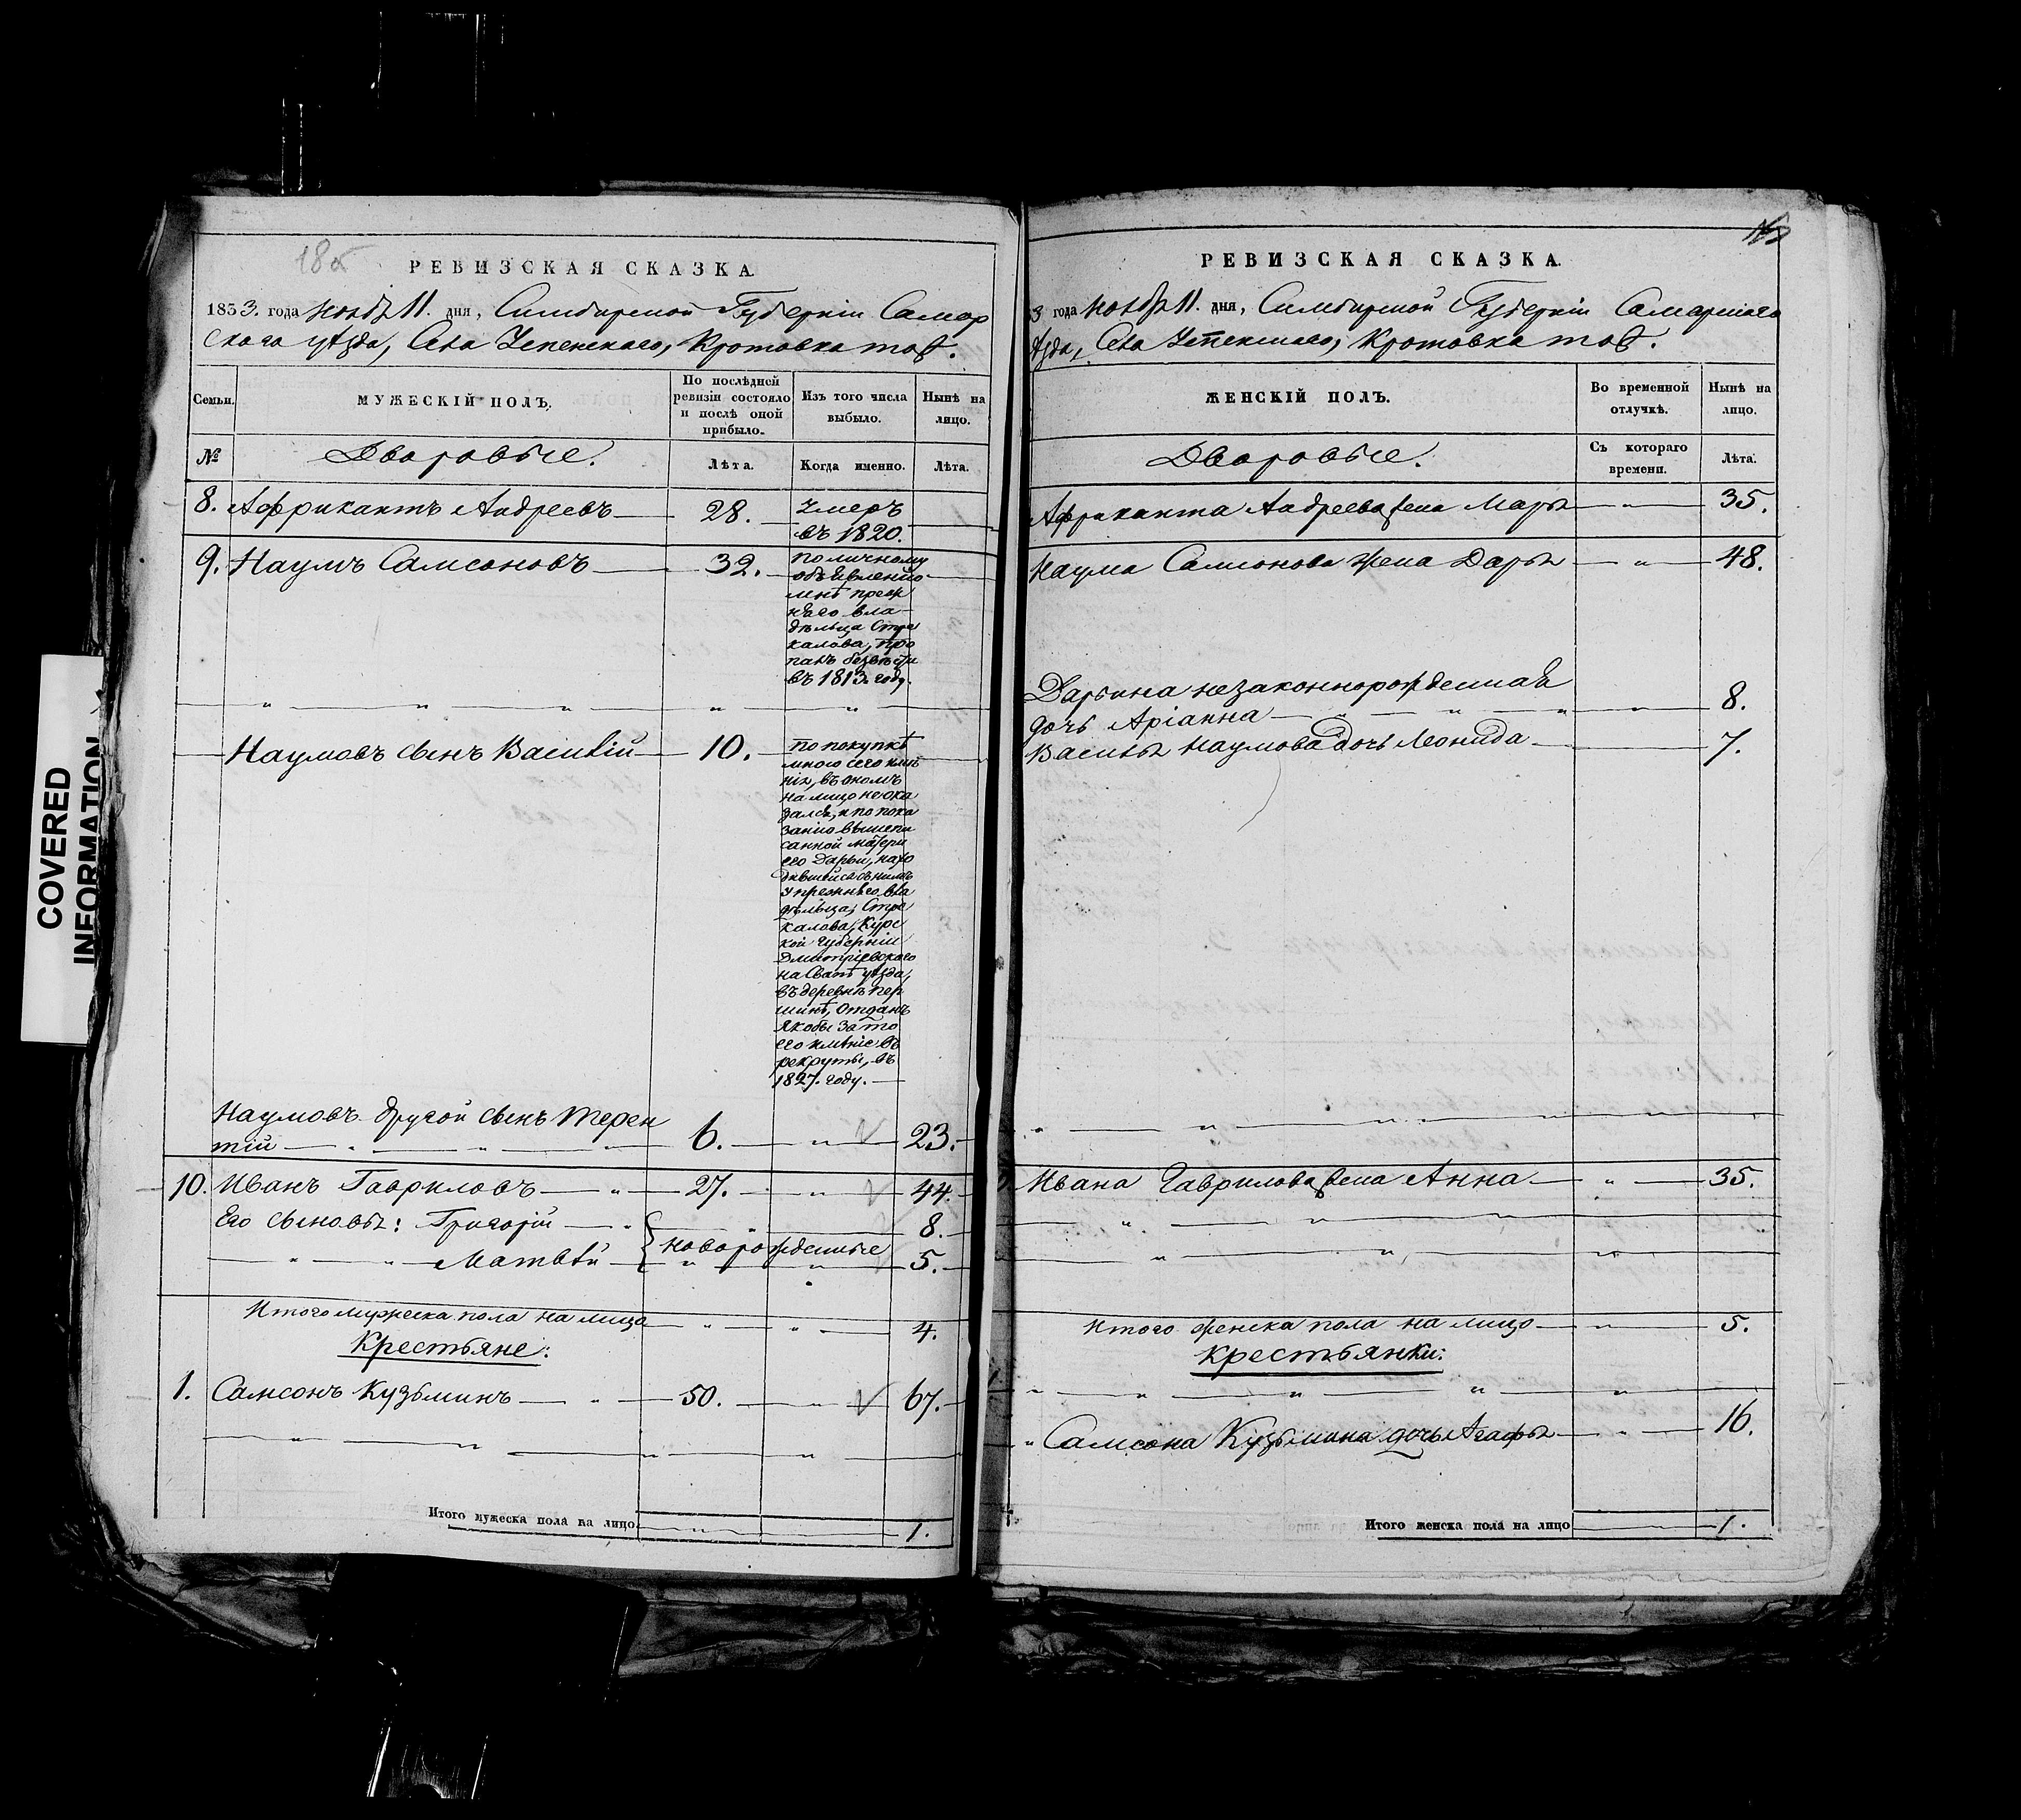 COVERED
INFORMATION
РЕВИЗСКАЯ СКАЗКА.
1833. года Нояб 11. дня, Симбирской Губерніи Самар
скаго уѣзда, Села Успенскаго, Кротовка тоѣ.
Семьи.
МУЖЕСКІЙ ПОЛЪ.
По послѣдней
ревизіи состояло
и послѣ оной
прибыло.
Изъ того числа
выбыло.
Нынѣ на
лицо.
№
Дворовые.
Лѣта.
Когда именно.
Лѣта.
8. Африкантъ Андреевъ 28. Умеръ
въ 1820.
9. Наумъ Самсоновъ 32. по личному
объявленію
прежн
няго вла
дѣльца Стре
калова, про
палъ безвѣсти
въ 1813. году.
Наумовъ сынъ Василій 10. По покупкѣ
мною сего имѣ
нія, въ ономъ
на лицо не ока
зался, и по пока
занію вышепи
санной матери
его Дарьи, нахо
дившейся съ нимъ
у прежняго вла
дѣльца, Стре
калова, Курс
кой Губерніи
Дмитріевскаго
на Свапѣ уѣзда,
въ деревнѣ Пер
шинѣ, отданъ
якобы за то
его имѣніе въ
рекруты, въ
1827. году.
Наумовъ другой сынъ Терен
тій 6. 23.
10. Иванъ Гавриловъ 27. 44.
Его сыновья: Григорій 8.
новорожденные
Матвѣй 5.
Итого мужеска пола на лицо 4.
Крестьяне:
1. Самсонъ Кузьминъ 50. 67.
Итого мужеска пола на лицо 1.
РЕВИЗСКАЯ СКАЗКА.
3 года Нояб 11. дня, Симбирской Губерніи Самарскаго
ѣзда, Села Успенскаго, Кротовка тоѣ.
ЖЕНСКІЙ ПОЛЪ.
Во временной
отлучкѣ.
Нынѣ на
лицо.
Дворовые.
Съ котораго
времени.
Лѣта.
Африканта Андреева жена Марья 35.
Наума Самсонова жена Дарья 48.
Дарьина незаконнорожденная
дочь Аріанна 8.
Василья Наумова дочь Леонида 7.
Ивана Гаврилова жена Анна 35.
Итого женска пола на лицо 5.
Крестьянки:
Самсона Кузьмина дочь Агафья 16.
Итого женска пола на лицо 1.